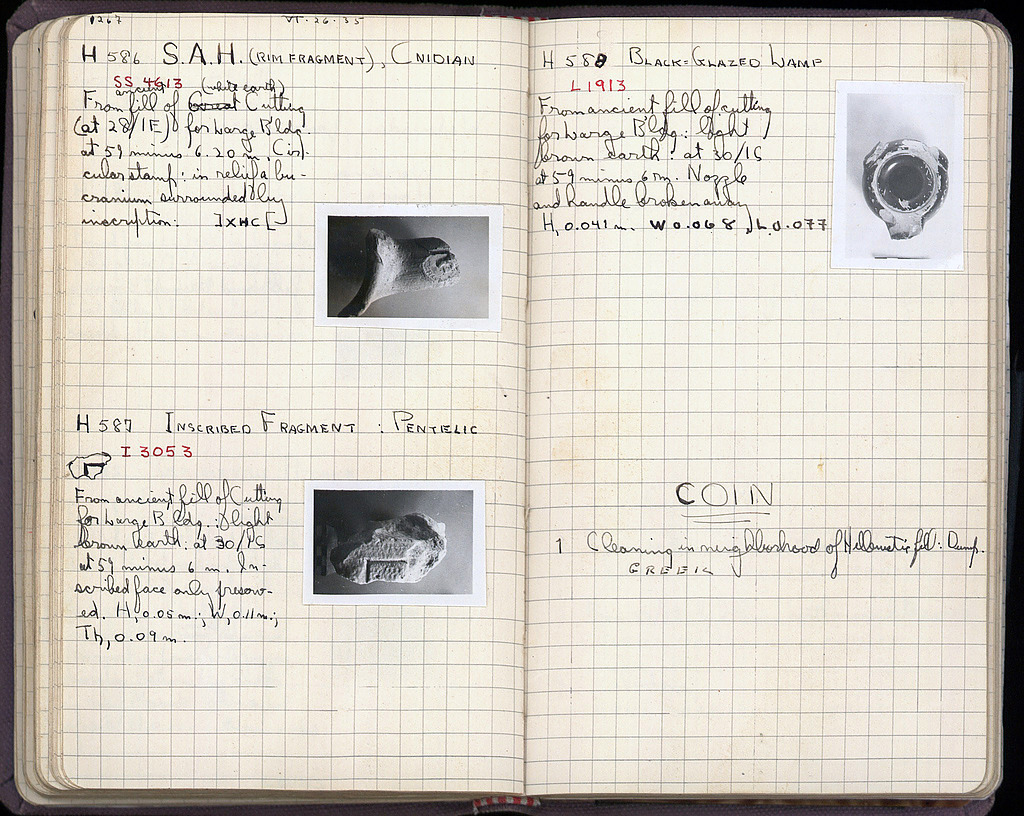 1267 VI-26-35
H 586 S.A.H. (RIM FRAGMENT), CNIDIAN
SS 4613
ancient (white earth)
From fill of Cutting
(at 28/IE) for Large Bldg.
at 59 minus 6.20 m. Cir-
cular stamp: in relief a bu-
cranium surrounded by
inscription: ]XHC[
H 587 INSCRIBED FRAGMENT : PENTELIC
I 3053
From ancient fill of Cutting
for Large Bldg.: light
brown earth: at 30/IS
at 59 minus 6 m. In-
scribed face only preserv-
ed. H, 0.05 m.; W, 0.11 m.;
Th, 0.09 m.
H 588 BLACK-GLAZED LAMP
L 1913
From ancient fill of cutting
for Large Bldg: light
brown earth: at 30/IS
at 59 minus 6 m. Nozzle
and handle broken away
H, 0.041 m. W 0.068, L 0.077
COIN
1 Cleaning in neighborhood of Hellenistic fill: Dump.
GREEK